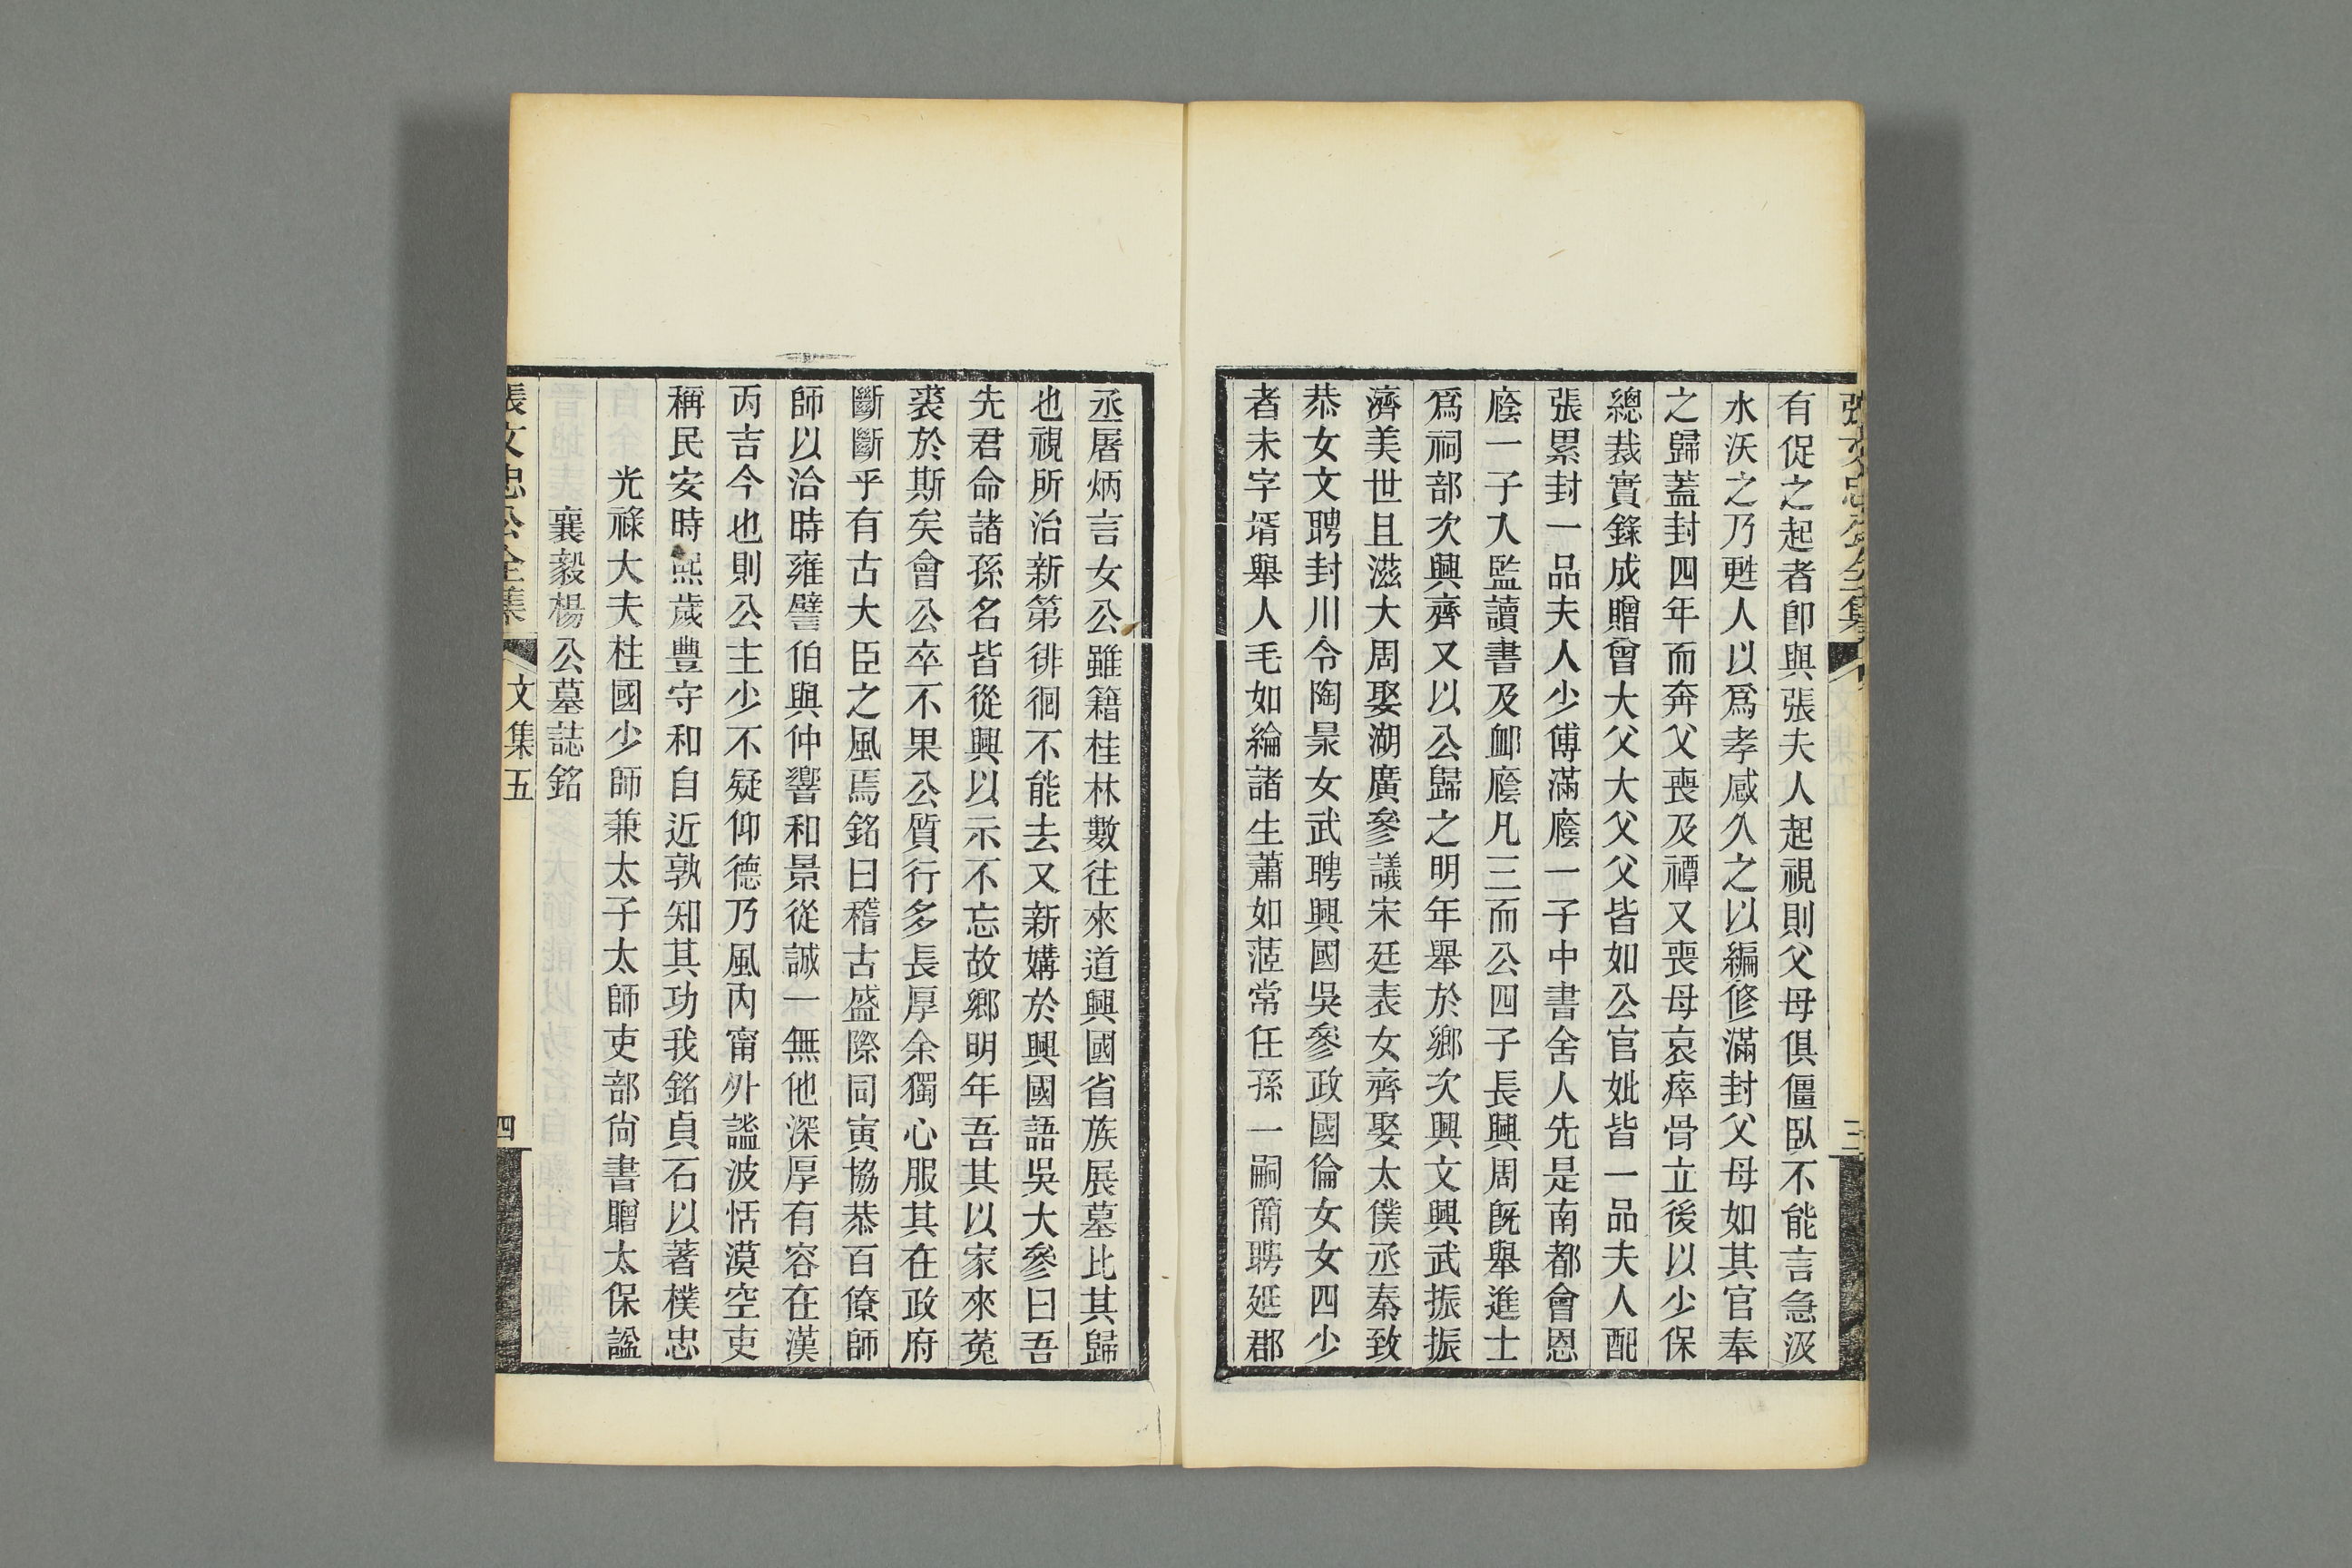 張文忠公全集
三
有促之起者卽與張夫人起視則父母俱僵臥不能言急汲
水沃之乃甦人以爲孝感久之以編修滿封父母如其官奉
之歸蓋封四年而奔父喪及禫又喪母哀瘁骨立後以少保
總裁實錄成贈曾大父大父父皆如公官妣皆一品夫人配
張累封一品夫人少傅滿廕一子中書舍人先是南都會恩
廕一子入監讀書及卹廕凡三而公四子長興周旣舉進士
爲祠部次興齊又以公歸之明年舉於鄉次興文興武振振
濟美世且滋大周娶湖廣參議宋廷表女齊娶太僕丞秦致
恭女文聘封川令陶杲女武聘興國吳參政國倫女女四少
者未字壻舉人毛如綸諸生蕭如蒞常任孫一嗣簡聘延郡
丞屠炳言女公雖籍桂林數往來道興國省族展墓比其歸
也視所治新第徘徊不能去又新媾於興國語吳大參曰吾
先君命諸孫名皆從興以示不忘故鄉明年吾其以家來菟
裘於斯矣會公卒不果公質行多長厚余獨心服其在政府
斷斷乎有古大臣之風焉銘曰稽古盛際同寅協恭百僚師
師以洽時雍譬伯與仲響和景從誠一無他深厚有容在漢
丙吉今也則公主少不疑仰德乃風內甯外謐波恬漠空吏
稱民安時熙歲豐守和自近孰知其功我銘貞石以著樸忠
光祿大夫柱國少師兼太子太師吏部尚書贈太保諡
襄毅楊公墓誌銘
張文忠公全集
文集五
四